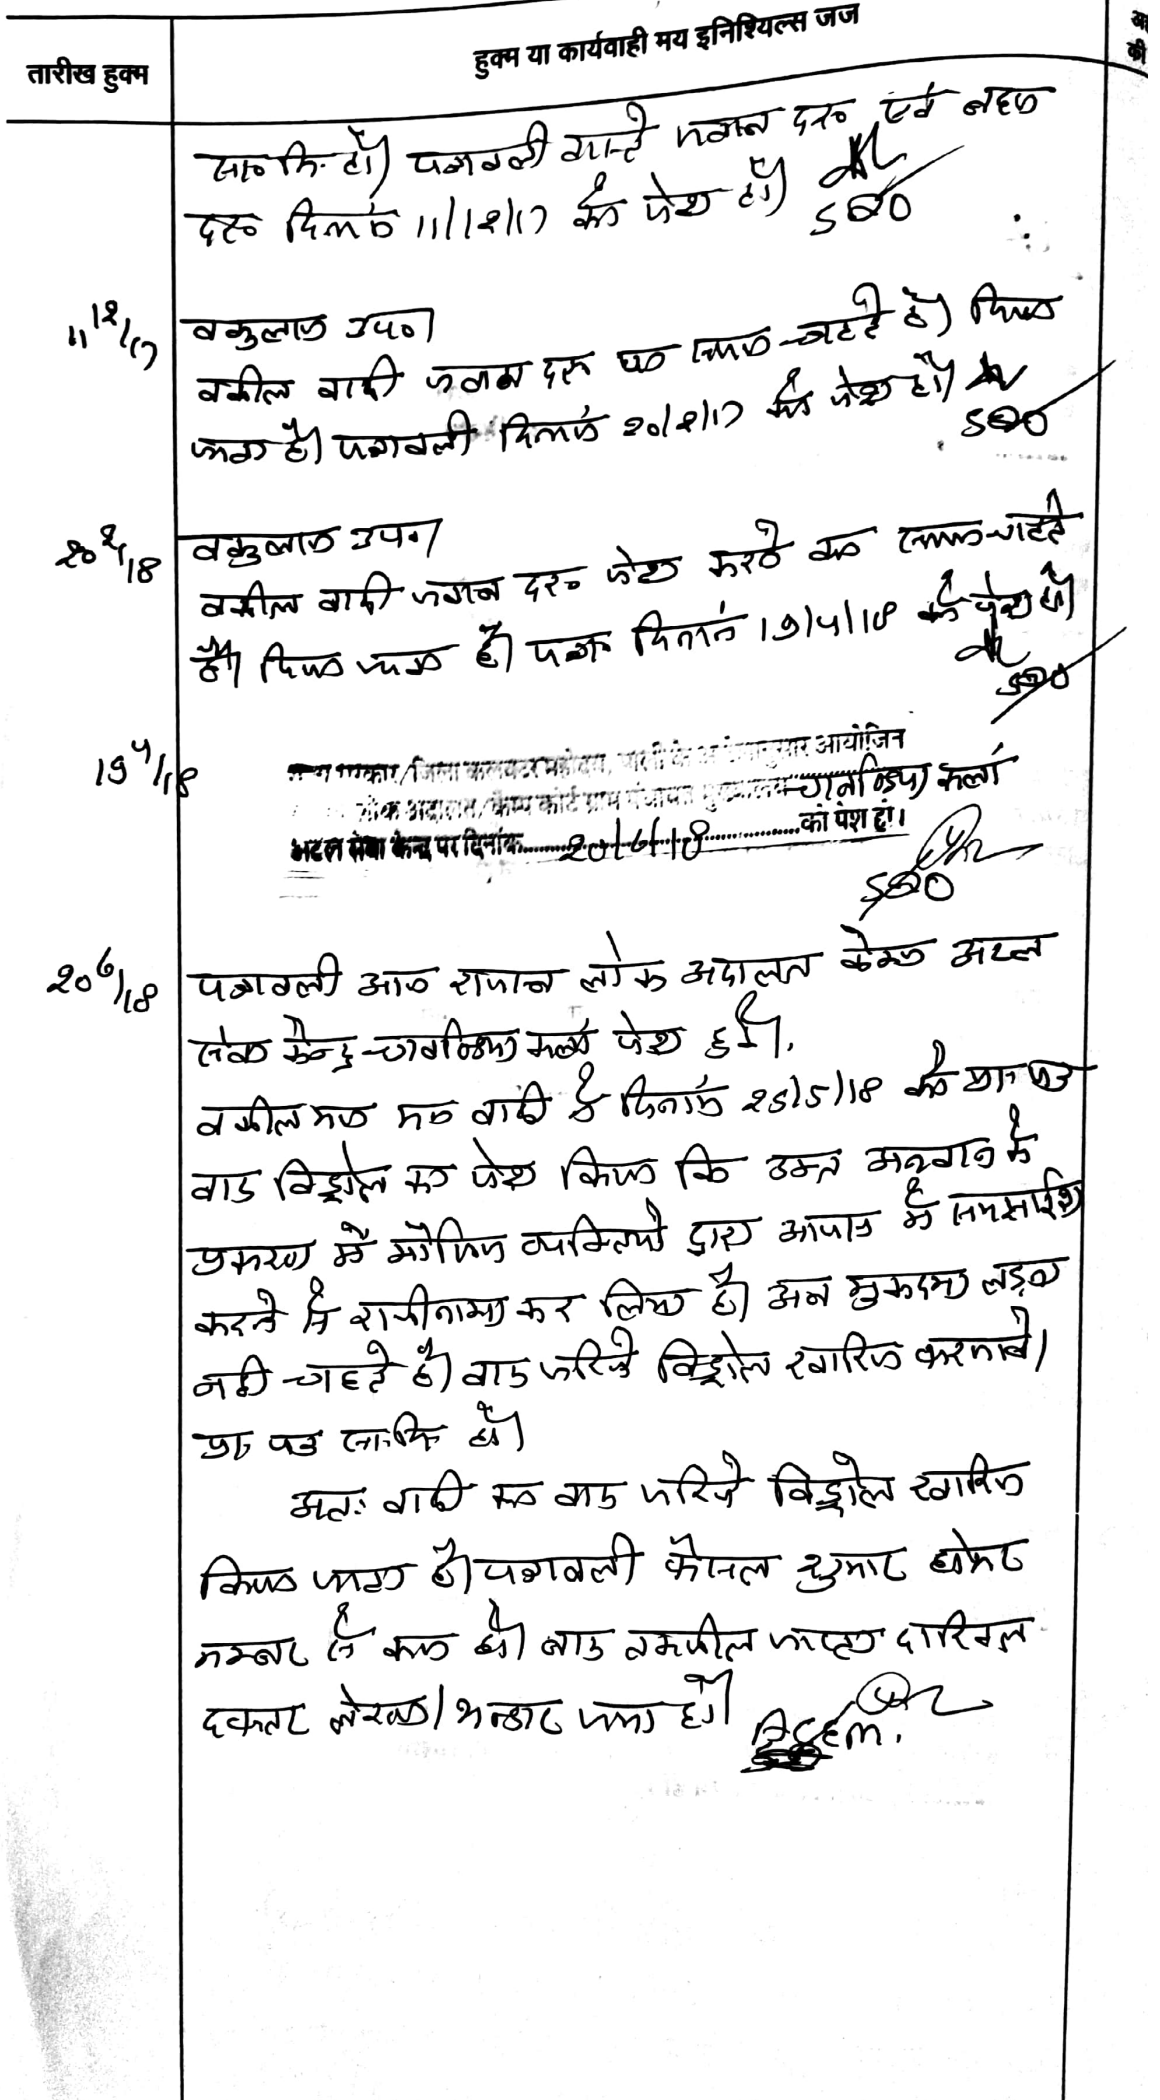 हुक्म या कार्यवाही मय इनिश्यिल्स जज
तारीख हुक्म
की
पत्रावली वास्ते जवाब दर० एवं बहस
दर० दिनांक 11/12/17 को पेश हो।
SDO
11/12/17
वकुलाय उप०।
वकील वादी जवाब दर० का समय चाहते है। दिया
जाता है। पत्रावली दिनांक 20/2/17 को पेश हो।
SDO
20/2/18
वकुलाय उप०।
वकील वादी जवाब दर० पेश करने का समय चाहते
है। दिया जाता है। पत्रा० दिनांक 19/4/18 को पेश हो।
SDO
19/4/18
सरकार/जिला कलक्टर महोदय, पाली के आदेशानुसार आयोजित
लोक अदालत/कैम्प कोर्ट ग्राम पंचायत मुख्यालय चावण्डिया कलां
अटल सेवा केन्द्र पर दिनांक 20/6/18 को पेश हो।
SDO
20/6/18
पत्रावली आज राजस्व लोक अदालत केम्प अटल
सेवा केन्द्र चावण्डिया कलां पेश हुई।
वकील मय वादी ने दिनांक 25/5/18 को प्रा० पत्र
वाद विड्रोल का पेश किया कि उक्त अनवान के
प्रकरण में मौजिज व्यक्तियो द्वारा आपस में समझाईश
करने से राजीनामा कर लिया है। अब मुकदमा लड़ना
नही चाहते है। वाद जरिये विड्रोल खारिज करमावे।
प्रा० पत्र शा०मि० हो।
अतः वादी का वाद जरिये विड्रोल खारिज
किया जाता है। पत्रावली फैसल शुमार होकर
नम्बर से कम हो। बाद तकमील जाब्ता दाखिल
दफ्तर लेखा/भन्डार जमा हो।
ACEM.